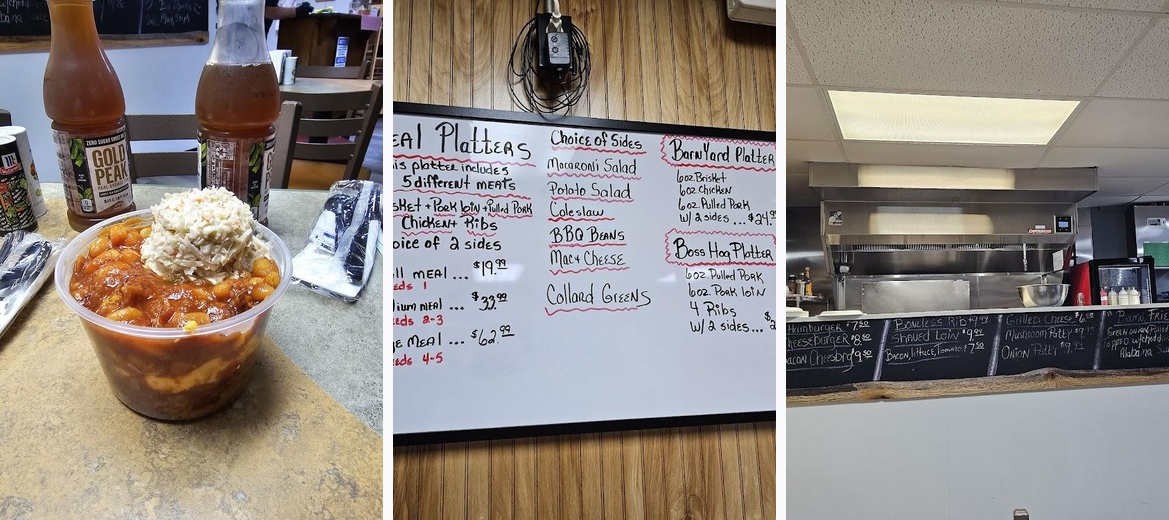 ZERO SUGAR SWEET TEA
GOLD
PEAK
EAL PLATTERS
his platter includes
5 different meats
sket + Pork loin + Pulled Pork
Chicken + Ribs
oice of 2 sides
ll meal ... $19.99
eds 1
dium meal ... $33.99
eds 2-3
ge Meal ... $62.99
eds 4-5
Choice of Sides
Macaroni Salad
Potato Salad
Coleslaw
BBQ Beans
Mac + Cheese
Collard Greens
BarnYard Platter
6oz. Brisket
6oz. Chicken
6oz. Pulled Pork
w/ 2 sides ... $24.99
Boss Hog Platter
6oz. Pulled Pork
6oz. Pork loin
4 Ribs
w/ 2 sides ... $2
Hamburger $7.50
Cheeseburger $8.50
Bacon Cheesbrg $9.50
Boneless Rib $9.99
Shaved Loin $9.99
Bacon, lettuce, Tomato $7.50
Grilled Cheese $6.00
Mushroom Patty $9.99
Onion Patty $9.99
Alabama